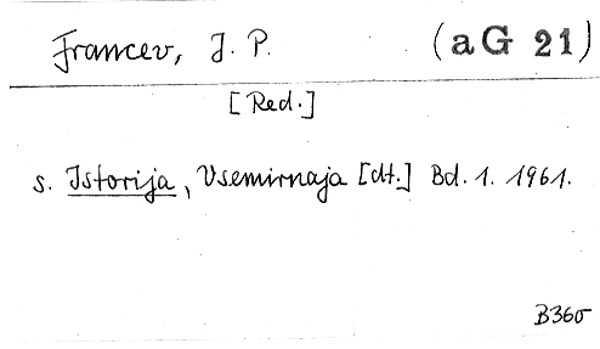 Francev, J. P. (aG 21)
[Red.]
s. Istorija, Vsemirnaja [dt.] Bd. 1. 1961.
B360